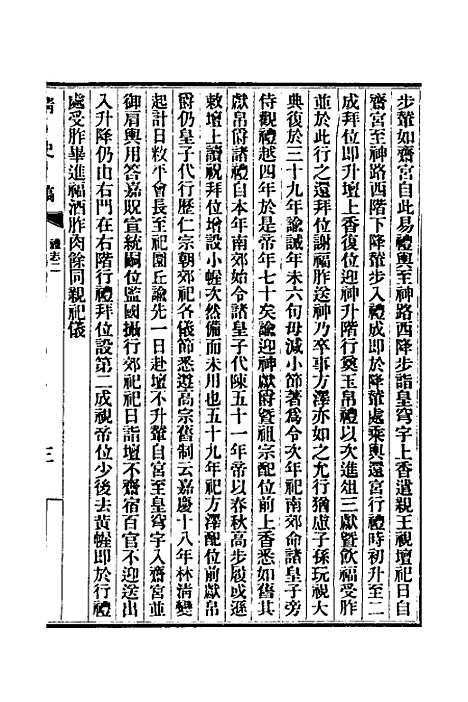 步輦如齋宮自此易禮輿至神路西降步詣皇穹宇上香遣親王視壇祀日自
齋宮至神路西階下降輦步入禮成即於降輦處乘輿還宮行禮時初升至二
成拜位即升壇上香復位迎神升階行奠玉帛禮以次進俎三獻暨飲福受胙
並於此行之還拜位謝福胙送神乃卒事方澤亦如之尤行猶慮子孫玩視大
典復於三十九年諭誡年未六旬毋減小節著爲令次年祀南郊命諸皇子旁
侍觀禮越四年於是帝年七十矣諭迎神獻爵暨祖宗配位前上香悉如舊其
獻帛爵諸禮自本年南郊始令諸皇子代陳五十一年帝以春秋高步履或遜
敕壇上讀祝拜位增設小幄次然備而未用也五十九年祀方澤配位前獻帛
爵仍皇子代行歷仁宗朝郊祀各儀節悉遵高宗舊制云嘉慶十八年林淸變
起計日敉平會長至祀圜丘諭先一日赴壇不升輦自宮至皇穹宇入齋宮並
御肩輿用答嘉貺宣統嗣位監國攝行郊祀祀日詣壇不齋宿百官不迎送出
入升降仍由右門在右階行禮拜位設第二成視帝位少後去黃幄即於行禮
處受胙畢進福酒胙肉餘同親祀儀
清史稿
禮志二
三